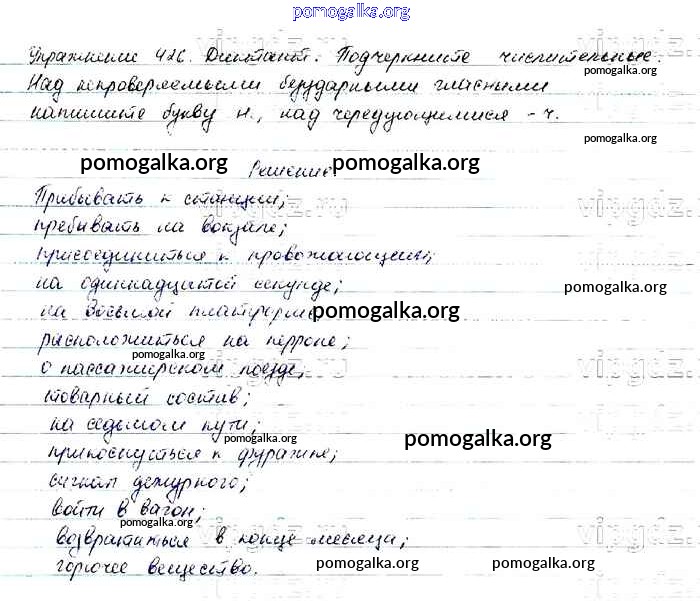 pomogalka.org
Упражнение 426. Диктант. Подчеркните числительные.
pomogalka.org
Над непроверяемыми безударными гласными
напишите букву н., над чередующимися - ч.
pomogalka.org
pomogalka.org Решение pomogalka.org
Прибывать к станции;
vipgdz.ru vipgdz.ru
пребывать на вокзале;
присоединиться к провожающим;
на одиннадцатой секунде; pomogalka.org
на восьмой платформе; pomogalka.org
расположиться на перроне;
pomogalka.org
vipgdz.ru vipgdz.ru
о пассажирском поезде;
товарный состав;
на седьмом пути;
pomogalka.org pomogalka.org
прикоснуться к фуражке;
сигнал дежурного;
войти в вагон;
pomogalka.org
vipgdz.ru vipgdz.ru
возвратиться в конце месяца;
горючее вещество. pomogalka.org pomogalka.org